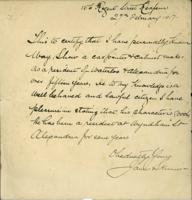 156 Regent Street Redfern
2nd February 1917.
This to certify that I have personally known
Mary Shaw a carpenter & cabinet maker
as a resident of Waterloo & Alexandria for
over fifteen years, and to my knowledge is a
well behaved and lawful citizen I have
pleasure in stating that his character is good
he has been a resident at Wyndham St
Alexandria for some years